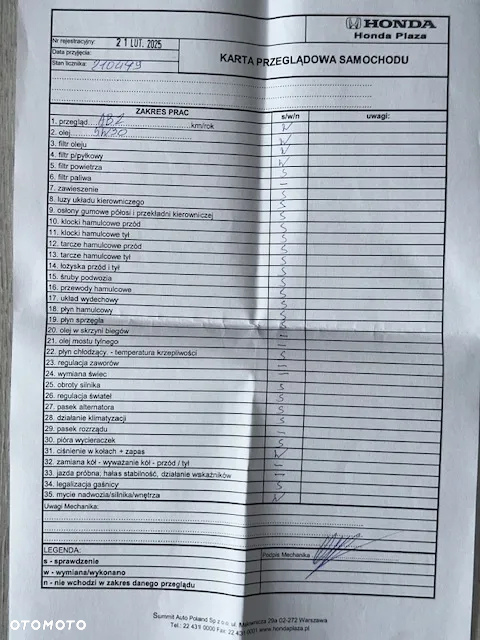 HONDA
Honda Plaza
Nr rejestracyjny: 21 LUT. 2025
Data przyjęcia:
Stan licznika: 210449
KARTA PRZEGLĄDOWA SAMOCHODU
ZAKRES PRAC s/w/n uwagi:
1. przegląd....AB2....km/rok W
2. olej....5W30....
3. filtr oleju
4. filtr p/pyłkowy
5. filtr powietrza
6. filtr paliwa
7. zawieszenie
8. luzy układu kierowniczego
9. osłony gumowe półosi i przekładni kierowniczej
10. klocki hamulcowe przód
11. klocki hamulcowe tył
12. tarcze hamulcowe przód
13. tarcze hamulcowe tył
14. łożyska przód i tył
15. śruby podwozia
16. przewody hamulcowe
17. układ wydechowy
18. płyn hamulcowy
19. płyn sprzęgła
20. olej w skrzyni biegów
21. olej mostu tylnego
22. płyn chłodzący. - temperatura krzepliwości S
23. regulacja zaworów -
24. wymiana świec -
25. obroty silnika S
26. regulacja świateł S
27. pasek alternatora S
28. działanie klimatyzacji S
29. pasek rozrządu -
30. pióra wycieraczek S
31. ciśnienie w kołach + zapas W
32. zamiana kół - wyważanie kół - przód / tył -
33. jazda próbna: hałas stabilność, działanie wskaźników -
34. legalizacja gaśnicy S
35. mycie nadwozia/silnika/wnętrza W
Uwagi Mechanika:
LEGENDA:
Podpis Mechanika
s - sprawdzenie
w - wymiana/wykonano
n - nie wchodzi w zakres danego przeglądu
Summit Auto Poland Sp z o.o. ul. 20a 02-272 Warszawa
Tel.: 22 431 0000 Fax: 22 431 0001 www.hondaplaza.pl
OTOMOTO